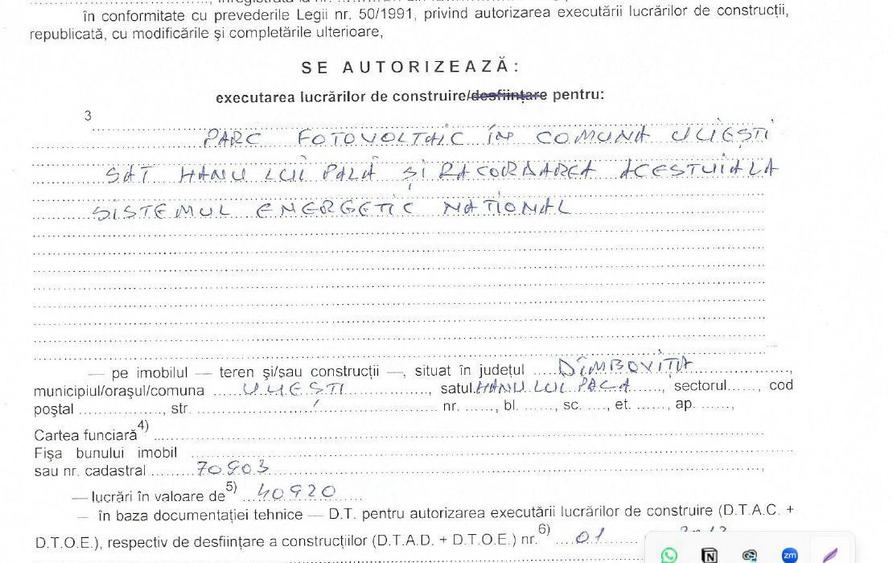 în conformitate cu prevederile Legii nr. 50/1991, privind autorizarea executării lucrărilor de construcții,
republicată, cu modificările și completările ulterioare,
SE AUTORIZEAZĂ:
executarea lucrărilor de construire/desființare pentru:
3
PARC FOTOVOLTAIC ÎN COMUNA ULIEȘTI
SAT HANU LUI PALĂ ȘI RACORDAREA ACESTUIA LA
SISTEMUL ENERGETIC NAȚIONAL
— pe imobilul — teren și/sau construcții —, situat în județul DÎMBOVIȚA,
municipiul/orașul/comuna ULIEȘTI, satul HANU LUI PALA, sectorul......, cod
poștal ............, str. ............ nr. ......, bl. ......, sc. ......, et. ......, ap. ......,
Cartea funciară 4)
Fișa bunului imobil
sau nr. cadastral 70903,
— lucrări în valoare de 5) 40920
— în baza documentației tehnice — D.T. pentru autorizarea executării lucrărilor de construire (D.T.A.C. +
D.T.O.E.), respectiv de desființare a construcțiilor (D.T.A.D. + D.T.O.E.) nr. 6) 01
zm